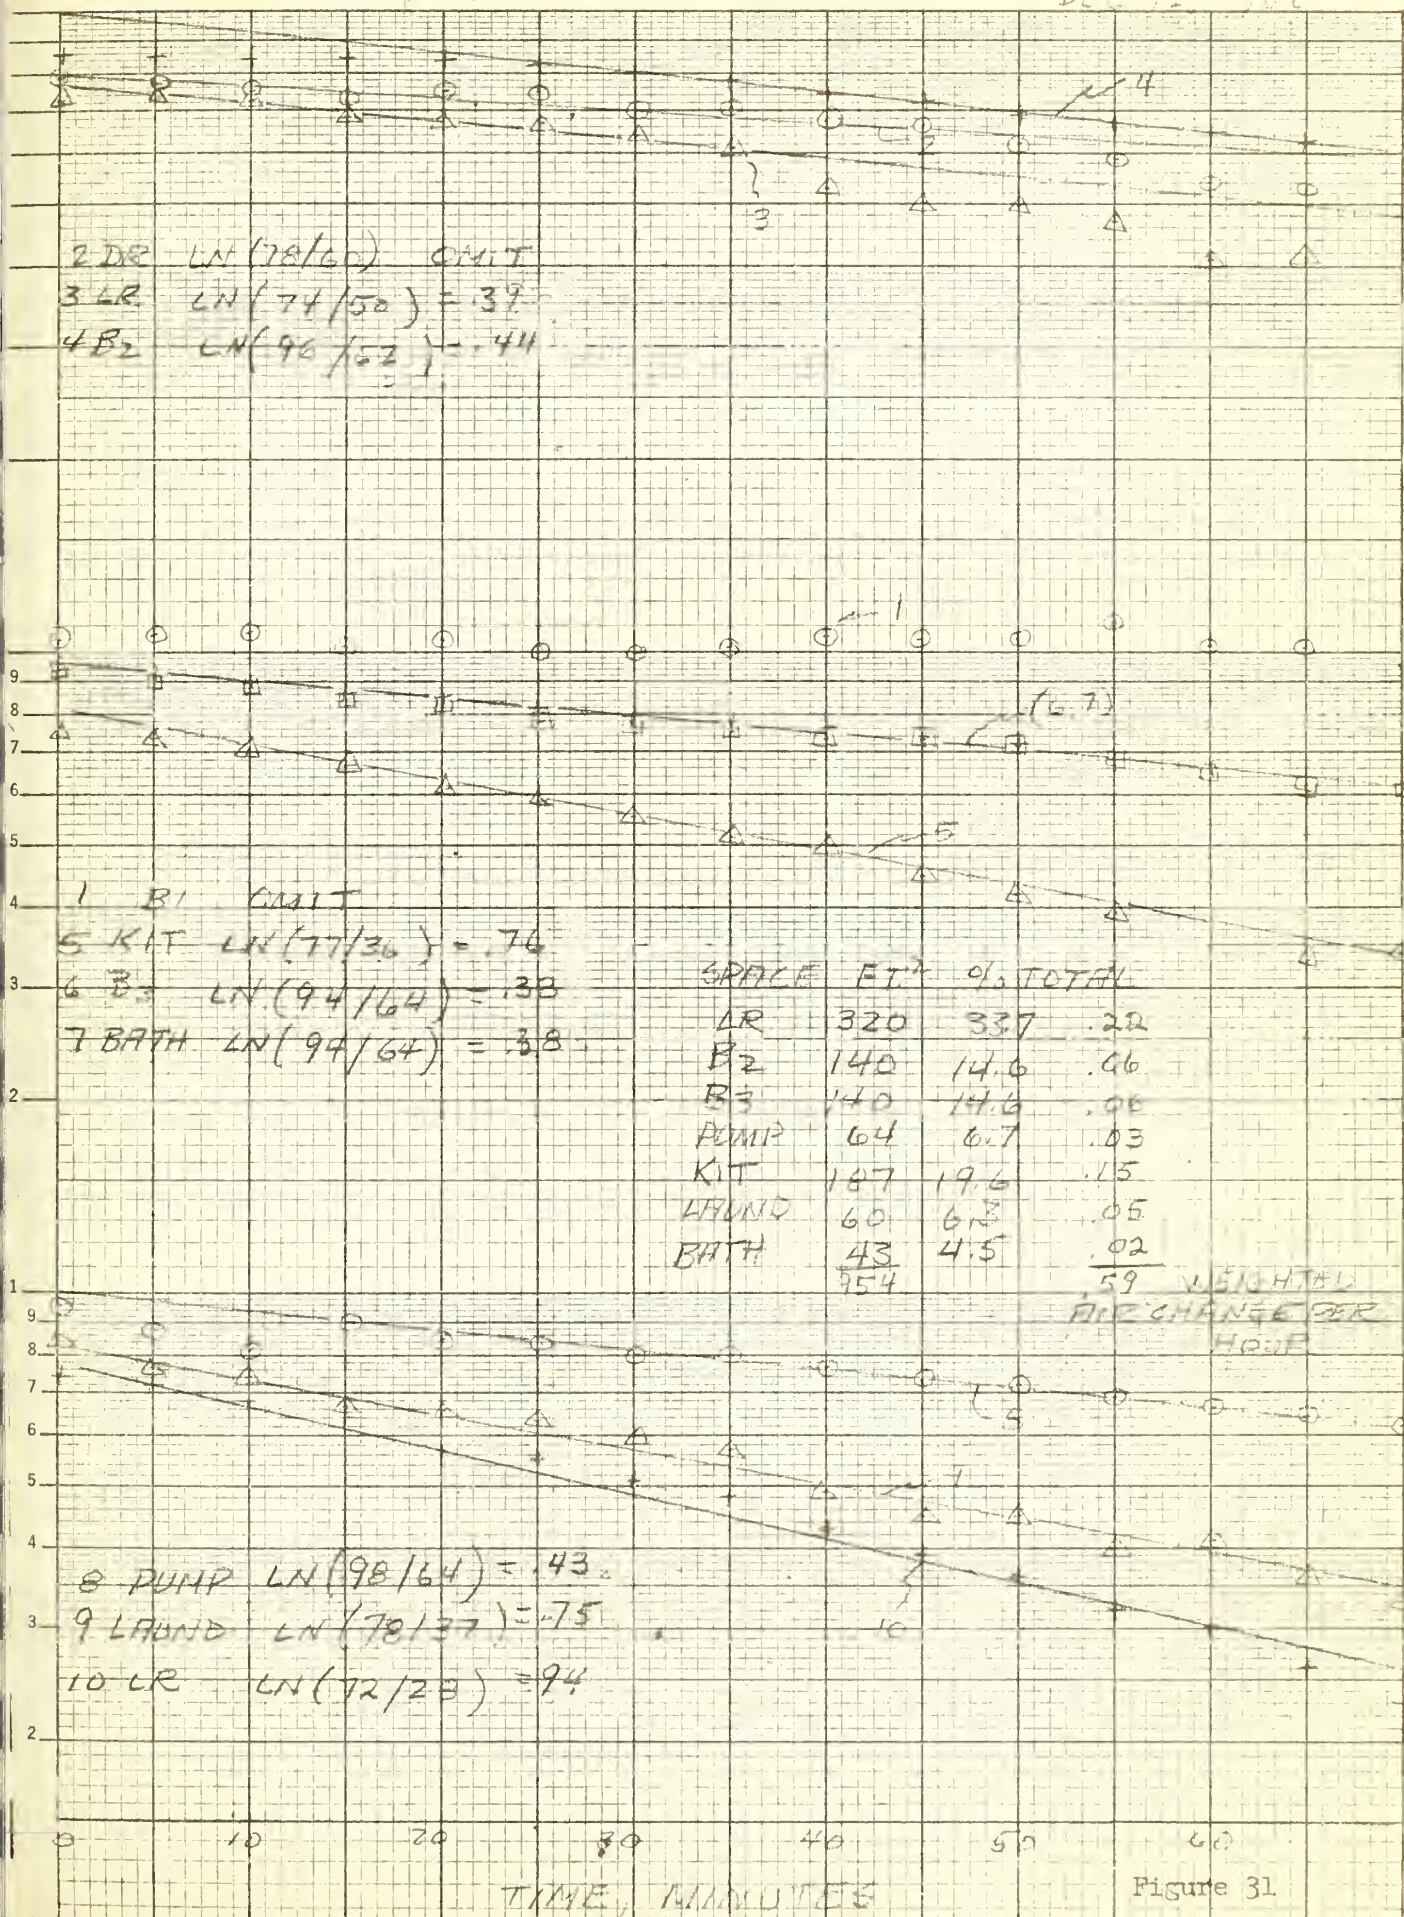 4
2
3
2 DR LN(78/60) OMIT
3 LR LN(74/50) = .39
4 B2 LN(96/62) = .44
1
9
8
(6.7)
7
6
5
5
4
1 B1 OMIT
5 KIT LN(77/36) = .76
6 B3 LN(94/64) = .38
7 BATH LN(94/64) = .38
3
2
1
SPACE FT² % TOTAL
LR 320 33.7 .22
B2 140 14.6 .06
B3 140 14.6 .06
PUMP 64 6.7 .03
KIT 187 19.6 .15
LAUND 60 6.3 .05
BATH 43 4.5 .02
954 .59 WEIGHTED
AIR CHANGE PER
HOUR
9
8
7
6
5
4
10
8 PUMP LN(98/64) = .43
9 LAUND LN(78/37) = .75
10 LR LN(72/28) = 94
3
2
0 10 20 30 40 50 60
TIME, MINUTES
Figure 31